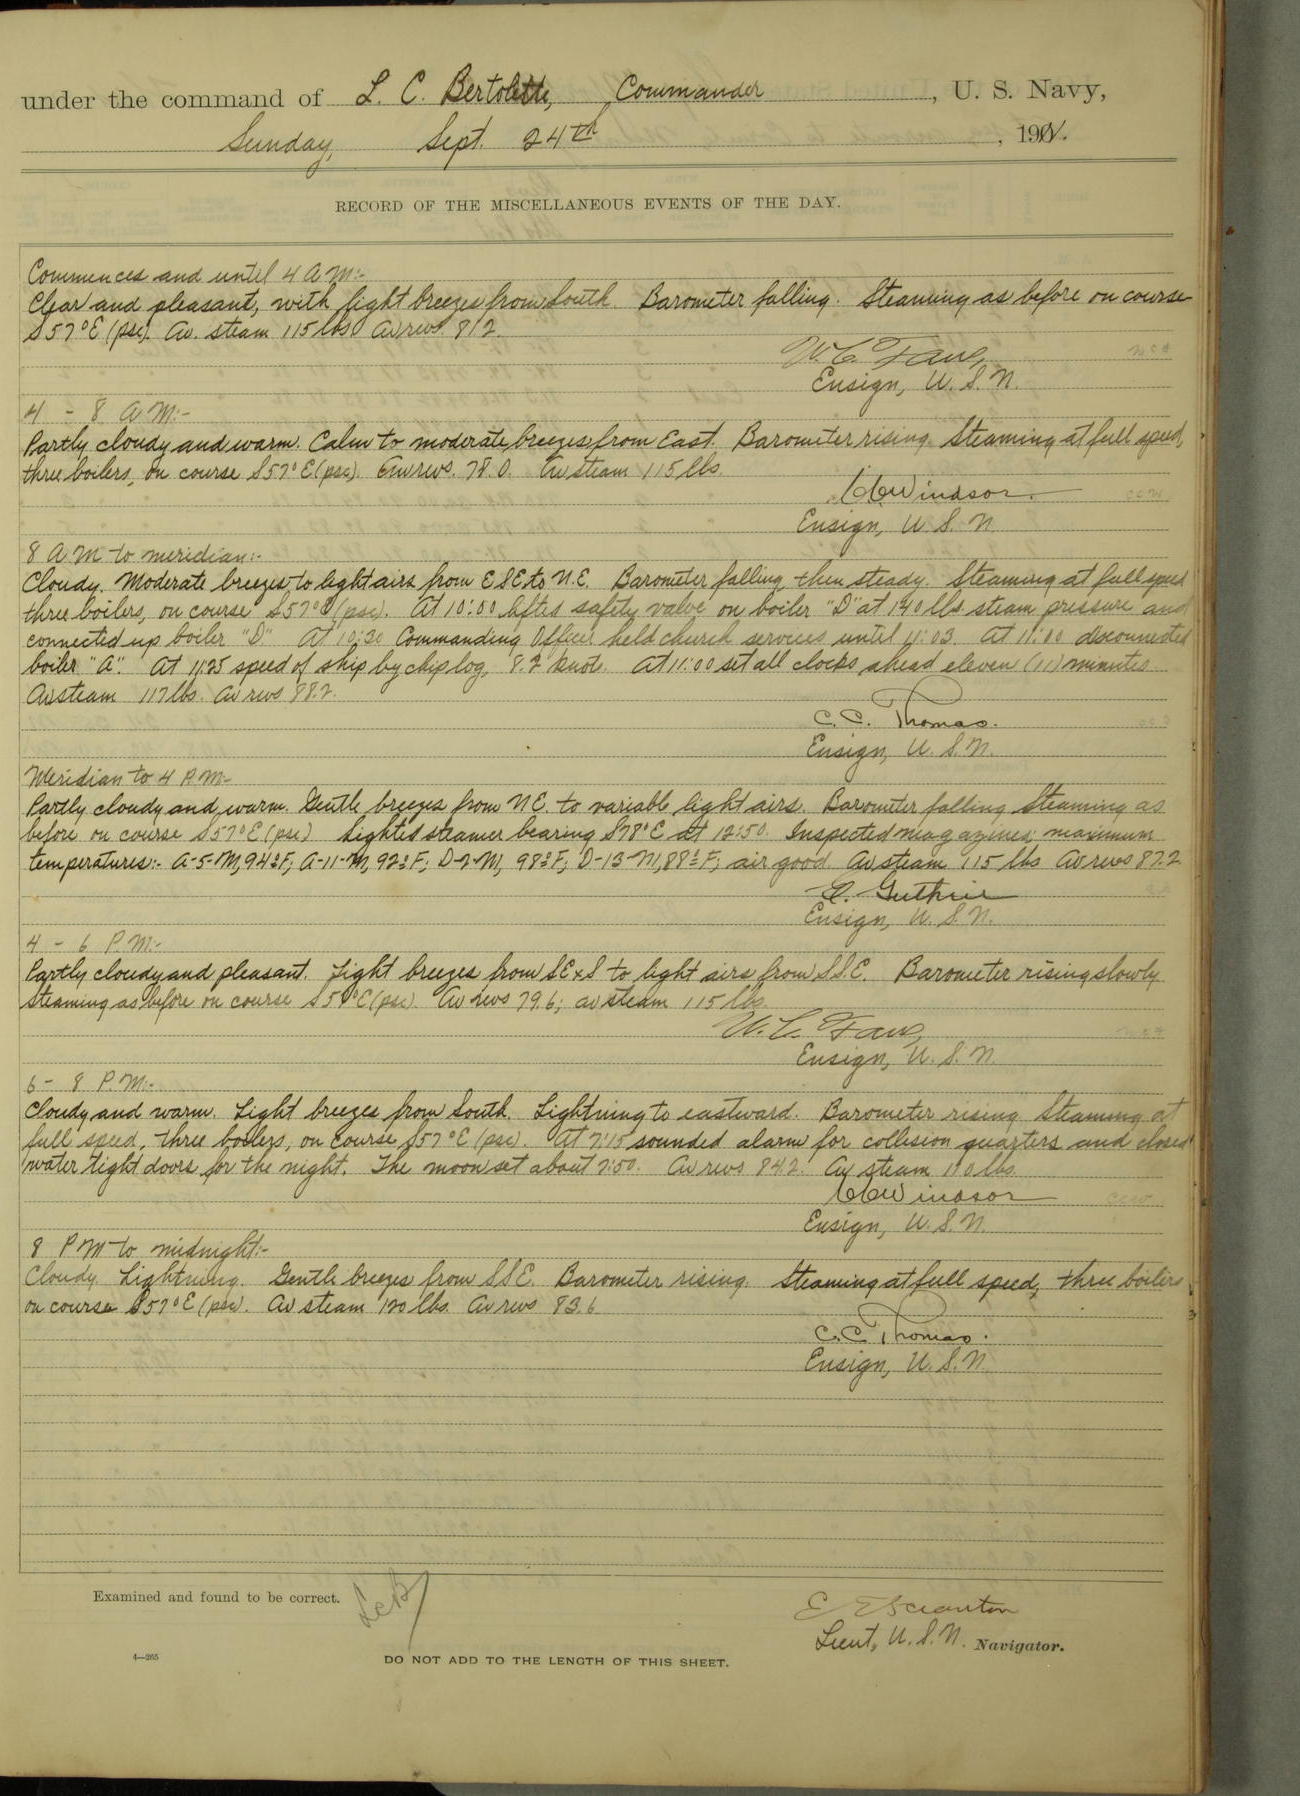 under the command of L. C. Bertolette, Commander, U. S. Navy,
Sunday, Sept. 24th, 1911.
RECORD OF THE MISCELLANEOUS EVENTS OF THE DAY.
Commences and until 4 A M:-
Clear and pleasant, with light breezes from South. Barometer falling. Steaming as before on course
S57°E (psc). Av. steam 115 lbs Av revs. 81.2.
W. C. Faus,
Ensign, U. S. N.
4 - 8 A M:-
Partly cloudy and warm. Calm to moderate breezes from East. Barometer rising. Steaming at full speed,
three boilers, on course S57°E (psc). Av revs. 78.0. Av steam 115 lbs.
CC Windsor.
Ensign, U. S. N.
8 A M to meridian:-
Cloudy. Moderate breezes to light airs from ESE to N.E. Barometer falling then steady. Steaming at full speed
three boilers, on course S57°E (psc). At 10:00 lifted safety valve on boiler "D" at 140 lbs steam pressure and
connected up boiler "D" At 10:30 Commanding Officer held church services until 11:03. At 11:00 disconnected
boiler "A". At 11:25 speed of ship by chip log, 8.2 knots. At 11:00 set all clocks ahead eleven (11) minutes
Av steam 117 lbs. Av revs 88.2.
C. C. Thomas.
Ensign, U. S. N.
Meridian to 4 P M-
Partly cloudy and warm. Gentle breezes from N E. to variable light airs. Barometer falling Steaming as
before on course S57°E (psc) Sighted steamer bearing S78°E at 12:50. Inspected magazines; maximum
temperatures:- A-5-M, 94°F; A-11-M, 92°F; D-2-M, 98°F; D-13-M, 88°F; air good Av steam 115 lbs Av revs 87.2
E. Guthrie
Ensign, U. S. N.
4 - 6 P M:-
Partly cloudy and pleasant. Light breezes from SExS to light airs from S.S.E. Barometer rising slowly
Steaming as before on course S57°E (psc) Av revs 79.6; av steam 115 lbs.
W. C. Faus,
Ensign, U. S. N.
6 - 8 P M:-
Cloudy and warm. Light breezes from South. Lightning to eastward. Barometer rising. Steaming at
full speed, three boilers, on course S57°E (psc). At 7:15 sounded alarm for collision quarters and closed
water tight doors for the night. The moon set about 7:50. Av revs 84.2. Av steam 110 lbs.
CC Windsor
Ensign, U. S. N.
8 P M to midnight:-
Cloudy. Lightning. Gentle breezes from SSE. Barometer rising. Steaming at full speed, three boilers
on course S57°E (psc). Av steam 120 lbs. Av revs 83.6
C. C. Thomas.
Ensign, U. S. N.
Examined and found to be correct. LCB
E E Scranton
Lieut, U. S. N. Navigator.
4—265
DO NOT ADD TO THE LENGTH OF THIS SHEET.